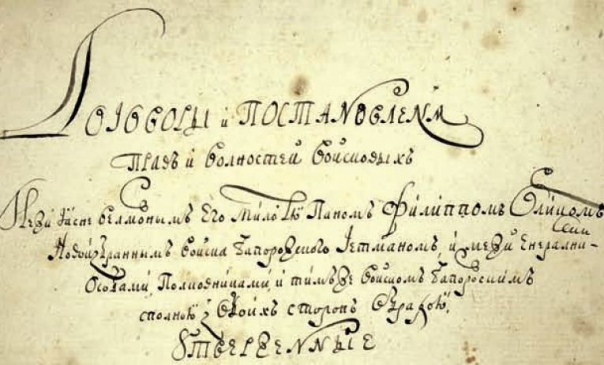 Договоры и ПОСТАНОВЛЕНІѦ
Правъ и волностей войсковыхъ
Межи Ясне велможнымъ Его Милостю Паномъ Филиппомъ Орликомъ
Новоизбраннымъ войска Запорожского Гетманомъ, и межи Енералними
Особами Полковниками, и тимъже войскомъ Запорозскимъ
сполною з обоихъ сторонъ обрадою,
ꙊТВЕРЖЕННЫЕ